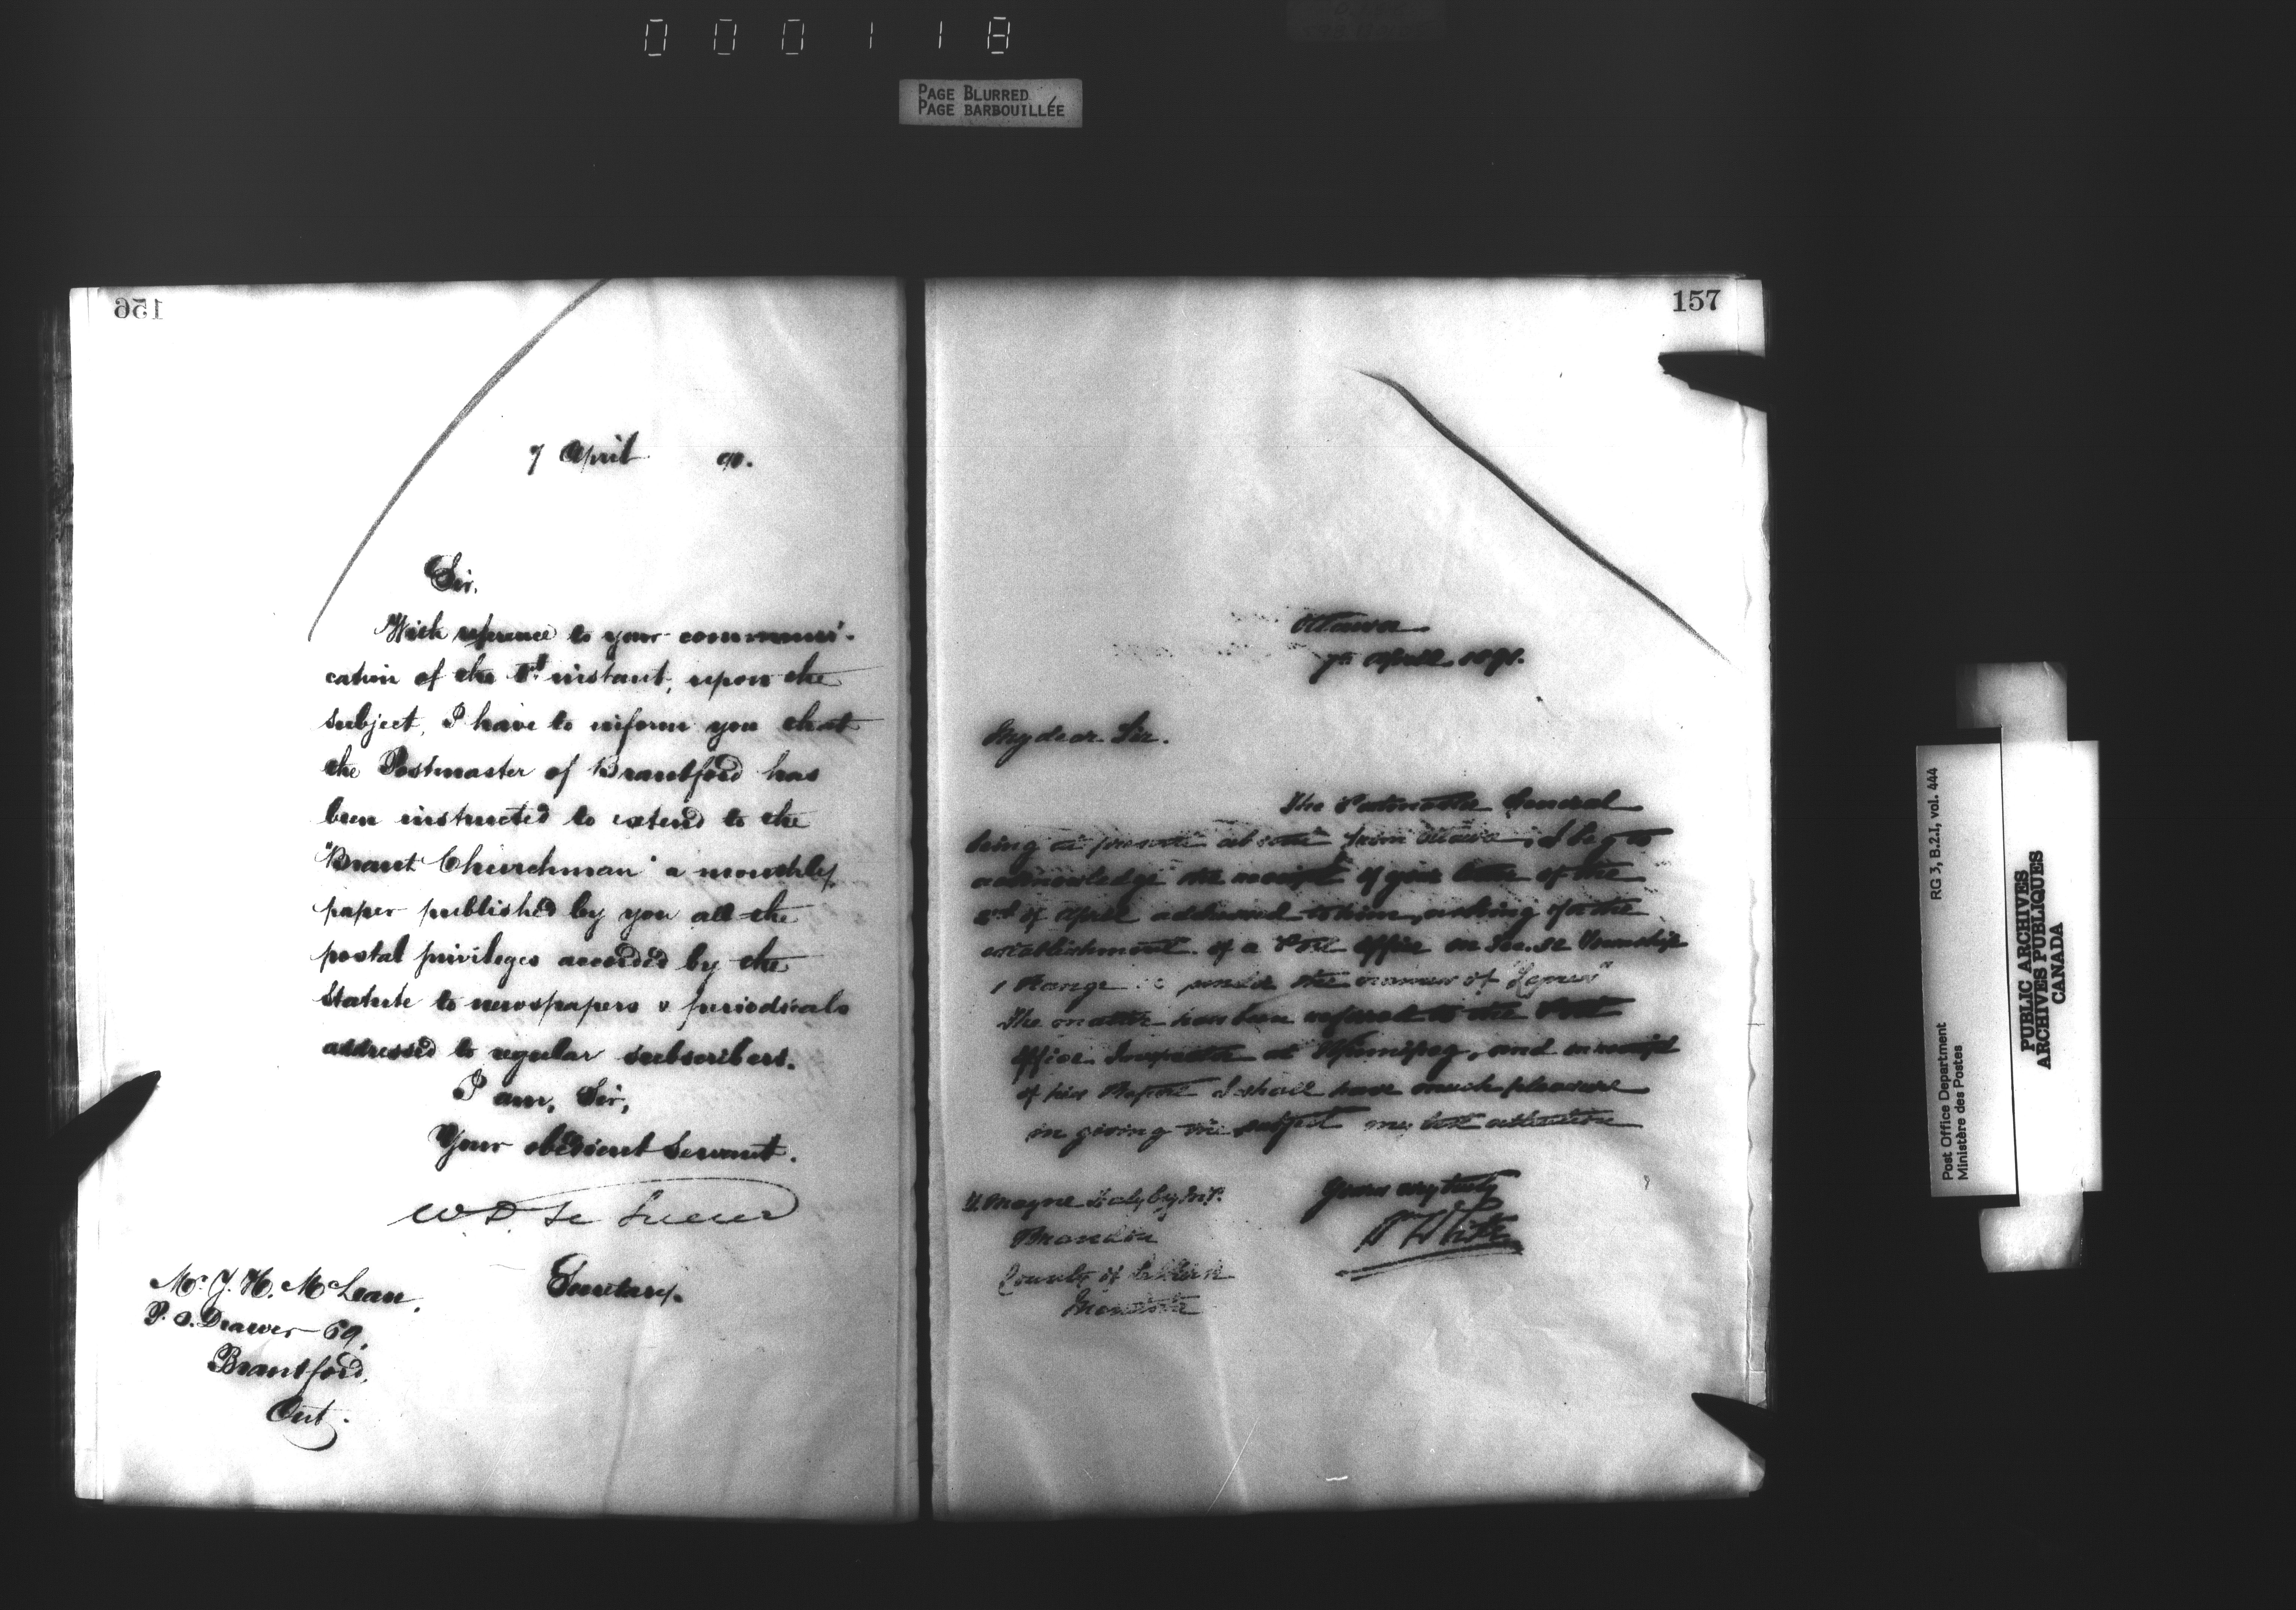 000118
PAGE BLURRED
PAGE BARBOUILLÉE
156
7 April 90.
Sir,
With reference to your communi-
cation of the instant, upon the
subject, I have to inform you that
the Postmaster of Brantford has
been instructed to extend to the
"Brant Churchman" a monthly
paper published by you all the
postal privileges accorded by the
Statute to newspapers & periodicals
addressed to regular subscribers.
I am, Sir,
Your obedient Servant.
W. D. Le Sueur
Secretary.
Mr. J. H. McLean,
P. O. Drawer 69,
Brantford,
Ont.
157
Ottawa
7th April
My dear Sir.
The Postmaster General
being at present absent from Ottawa, I beg to
acknowledge the receipt of your letter of the
of April addressed to him, asking for the
establishment of a Post Office on Sec. 32 Township
1 Range under the name of
The matter has been referred to the Post
Office Inspector at Winnipeg, and on receipt
of his Report I shall have much pleasure
in giving the subject my best attention
Yours very truly
White
Mayne Daly Esq M.P.
Brandon
County of Selkirk
Manitoba
Post Office Department
Ministère des Postes
RG 3, B.2.I, vol. 444
PUBLIC ARCHIVES
ARCHIVES PUBLIQUES
CANADA